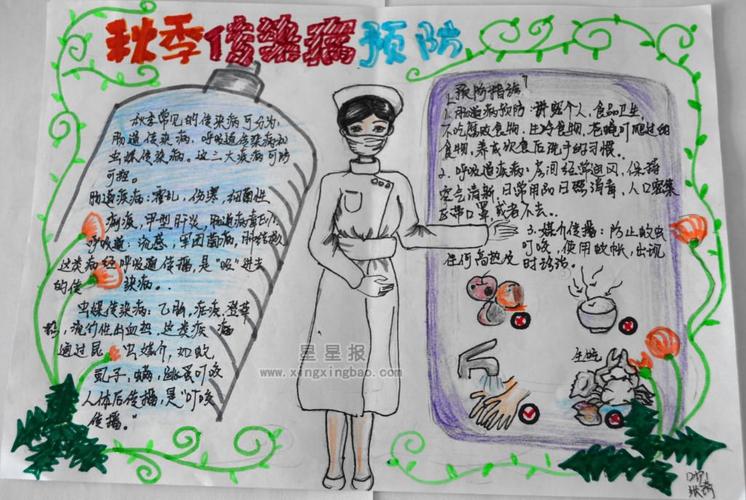 秋季传染病预防
秋季常见的传染病可分为:
肠道传染病,呼吸道传染病和
虫媒传染病。这三大疾病可防
可控。
肠道疾病:霍乱,伤寒,细菌性
痢疾,甲型肝炎,肠道病毒
呼吸道:流感,军团菌病,肺结核
这类病经呼吸道传播,是“吸”进去
的传染病。
虫媒传染病:乙脑,疟疾,登革
热,流行性出血热,这类疾病
通过昆虫媒介,如蚊,
虱子,螨,跳蚤叮咬
人体后传播,是“叮咬
传播。”
预防措施
1.肠道病预防:讲究个人,食品卫生,
不吃腐败食物,生冷食物,苍蝇叮爬过的
食物,养成饮食后洗手的习惯。
2.呼吸道疾病:房间经常通风,保持
空气清新,日常用品日照消毒,人口密集
区带口罩,或者不去。
3.媒介传播:防止蚊虫
叮咬,使用蚊帐,出现
任何高热应及时诊治。
生吃
星星报
www.xingxingbao.com